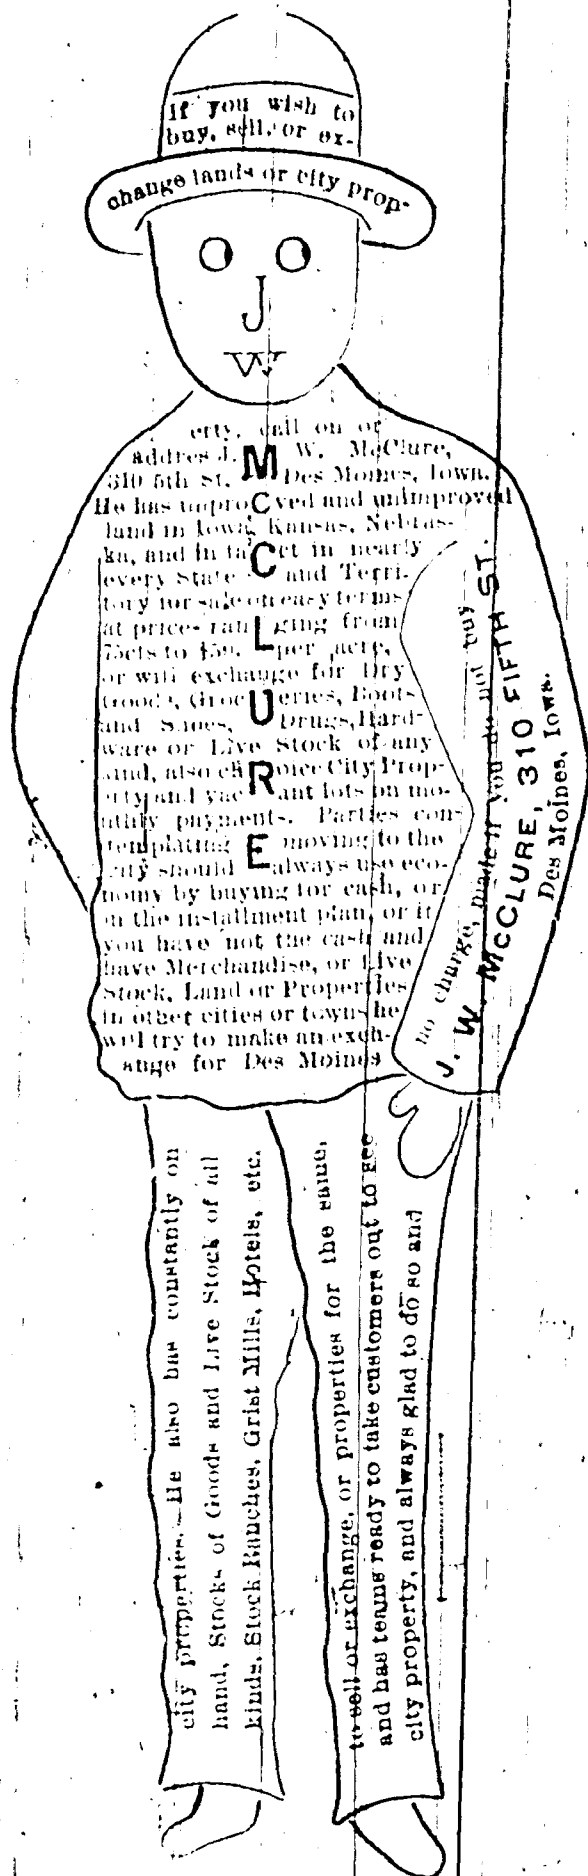 If you wish to
buy, sell, or ex-
change lands or city prop-
J
W
erty, call on or
addres J. W. McClure,
310 5th St. Des Moines, Iowa.
He has improved and unimproved
land in Iowa, Kansas, Nebras-
ka, and in fact in nearly
every State and Terri-
tory for sale on easy terms
at prices ranging from
75cts to $50. per acre,
or will exchange for Dry
Goods, Groceries, Boots
and Shoes, Drugs, Hard-
ware or Live Stock of any
kind, also choice City Prop-
erty and vacant lots on mo-
nthly payments. Parties con-
templating moving to the
city should always use eco-
nomy by buying for cash, or
on the installment plan, or if
you have not the cash and
have Merchandise, or Live
Stock, Land or Properties
in other cities or towns he
will try to make an exch-
ange for Des Moines
McCLURE
city properties. He also has constantly on
hand, Stocks of Goods and Live Stock of all
kinds, Stock Ranches, Grist Mills, Hotels, etc.
to sell or exchange, or properties for the same,
and has teams ready to take customers out to see
city property, and always glad to do so and
no charge, made if you do not buy
J. W. McCLURE, 310 FIFTH ST.
Des Moines, Iowa.